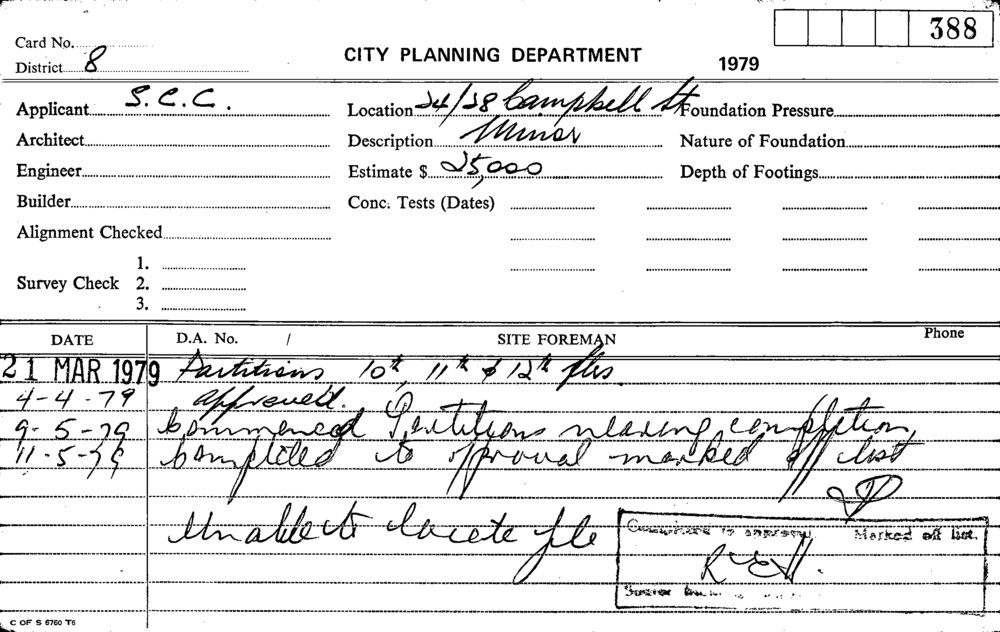 388
Card No.
CITY PLANNING DEPARTMENT 1979
District 8
Applicant S.C.C. Location 24/28 Campbell St Foundation Pressure
Architect Description Minor Nature of Foundation
Engineer Estimate $ 25,000 Depth of Footings
Builder Conc. Tests (Dates)
Alignment Checked
1.
Survey Check 2.
3.
DATE D.A. No. / SITE FOREMAN Phone
21 MAR 1979 Partitions 10th, 11th & 12th flrs.
4-4-79 approved.
9-5-79 Commenced Partitions nearing completion
11-5-79 Completed to approval marked off list
Unable to locate file
Completed to approval. Marked off list.
Senior
C OF S 6760 T6